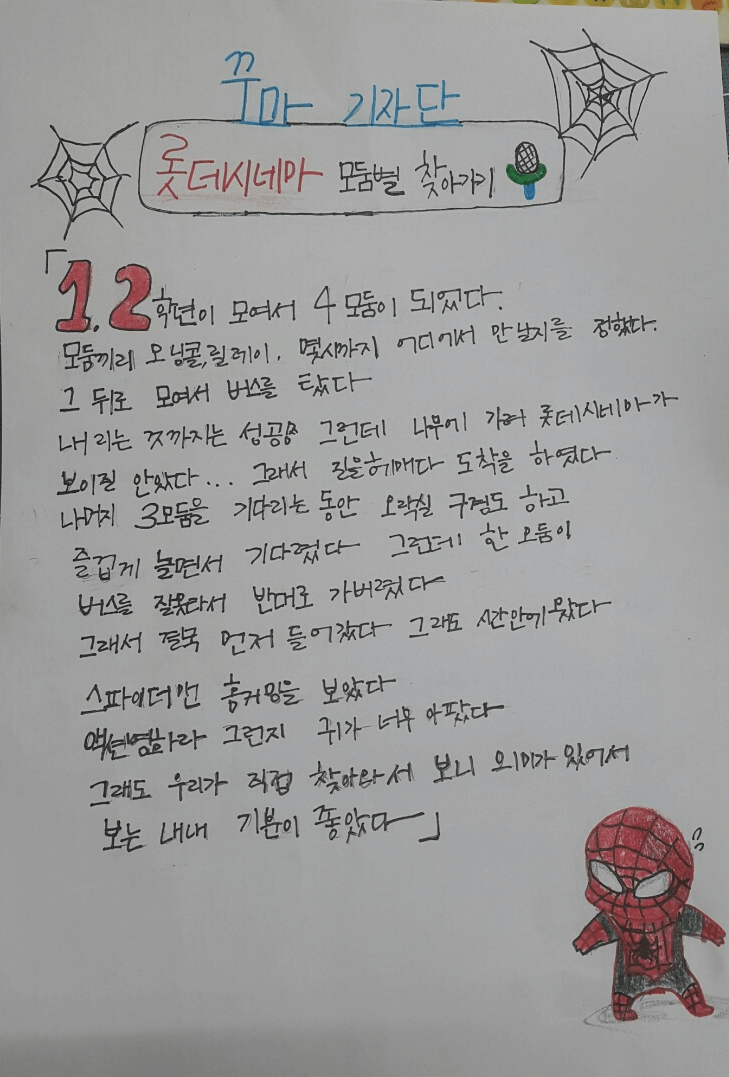 꾸마 기자단
롯데시네마 모둠별 찾아가기
「1.2학년이 모여서 4모둠이 되었다.
모둠끼리 모닝콜,릴레이, 몇시까지 어디에서 만날지를 정했다.
그 뒤로 모여서 버스를 탔다
내리는 것까지는 성공 그런데 나무에 가려 롯데시네마가
보이질 안았다... 그래서 길을헤매다 도착을 하였다
나머지 3모둠을 기다리는 동안 오락실 구경도 하고
즐겁게 놀면서 기다렸다 그런데 한 모둠이
버스를 잘못타서 반대로 가버렸다
그래서 결국 먼저 들어갔다 그래도 시간안에 왔다
스파이더맨 홈커밍을 보았다
액션영화라 그런지 귀가 너무 아팠다
그래도 우리가 직접 찾아와서 보니 의미가 있어서
보는 내내 기분이 좋았다」